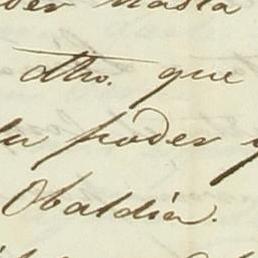 hasta
dho. que
poder
Obaldia.